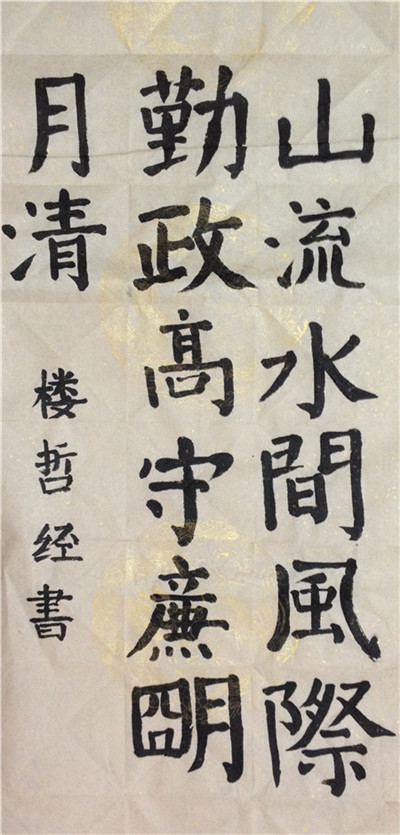 山流水間風際
勤政高守廉朙
月清
楼哲经書